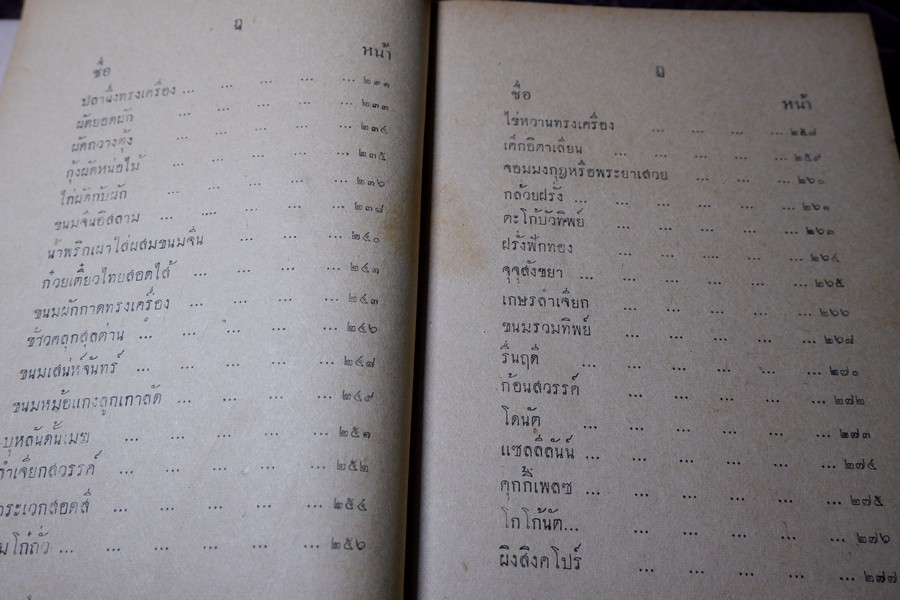 ฎ
ชื่อ หน้า
ปลานึ่งทรงเครื่อง ... ... ... ... ... ๒๓๑
ผัดยอดผัก ... ... ... ... ... ๒๓๓
ผัดกวางตุ้ง ... ... ... ... ... ๒๓๔
กุ้งผัดหน่อไม้ ... ... ... ... ... ๒๓๕
ไก่ผัดกับผัก ... ... ... ... ... ๒๓๖
ขนมจีนอิสลาม ... ... ... ... ๒๓๘
น้ำพริกเผาใส่ผสมขนมจีน ... ... ... ๒๔๐
ก๋วยเตี๋ยวไทยสอดไส้ ... ... ... ... ๒๔๑
ขนมผักกาดทรงเครื่อง ... ... ... ... ๒๔๓
ข้าวคลุกสุลต่าน ... ... ... ... ... ๒๔๖
ขนมเสน่ห์จันทร์ ... ... ... ... ... ๒๔๗
ขนมหม้อแกงลูกเกาลัด ... ... ... ... ๒๔๙
บุหลันดั้นเมฆ ... ... ... ... ... ๒๕๑
ลำเจียกสวรรค์ ... ... ... ... ... ๒๕๒
กระเวกสอดสี ... ... ... ... ... ๒๕๔
ขนมโก๋ถั่ว ... ... ... ... ... ... ๒๕๖
ฏ
ชื่อ หน้า
ไข่หวานทรงเครื่อง ... ... ... ... ๒๕๗
เค็กอิตาเลียน ... ... ... ... ... ๒๕๙
จอมมงกุฎหรือพระยาเสวย ... ... ... ๒๖๐
กล้วยฝรั่ง ... ... ... ... ... ... ๒๖๑
ตะโก้บัวทิพย์ ... ... ... ... ... ๒๖๓
ฝรั่งฟักทอง ... ... ... ... ... ๒๖๔
จุจุสังขยา ... ... ... ... ... ... ๒๖๕
เกษรลำเจียก ... ... ... ... ... ๒๖๖
ขนมรวมทิพย์ ... ... ... ... ... ๒๖๘
รื่นฤดี ... ... ... ... ... ๒๗๐
ก้อนสวรรค์ ... ... ... ... ... ๒๗๒
โดนัตู ... ... ... ... ... ๒๗๓
แซลลี่ลันน์ ... ... ... ... ... ๒๗๔
คุกกี้เพลซ ... ... ... ... ... ... ๒๗๕
โกโก้นัต... ... ... ... ... ... ๒๗๖
ผิงสิงคโปร์ ... ... ... ... ... ๒๗๗